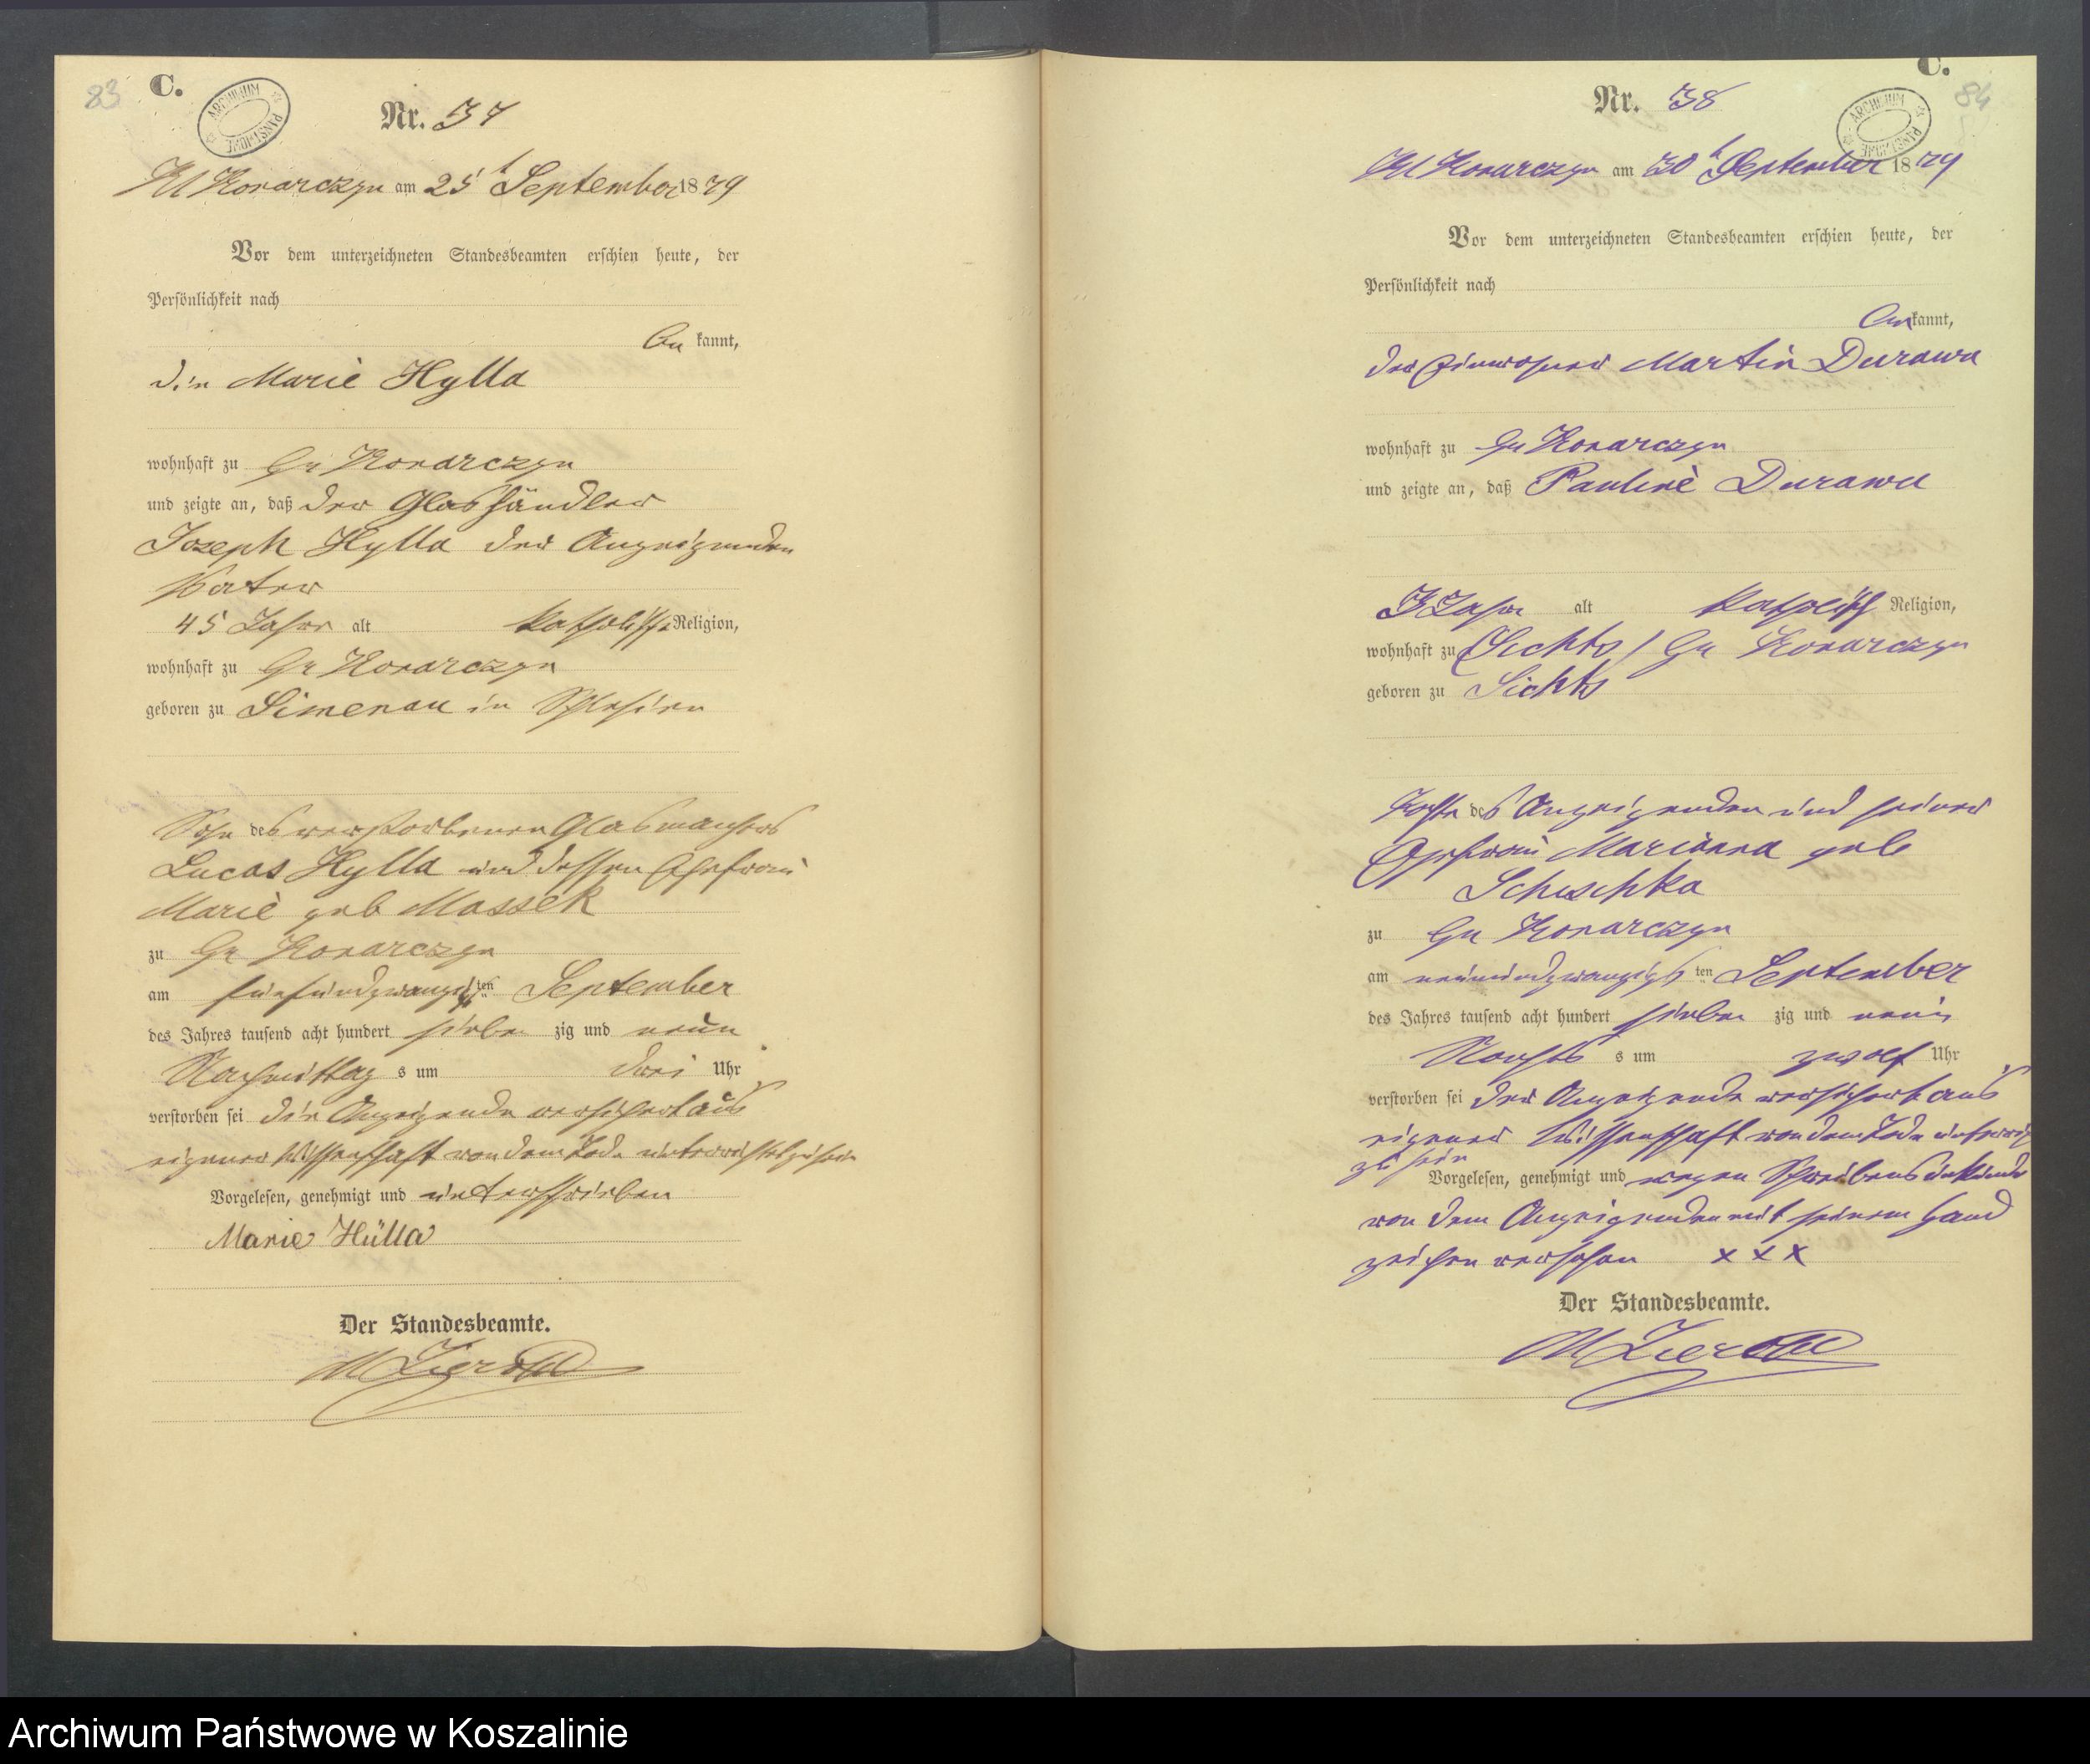 83
C.
ARCHIWUM PAŃSTWOWE
Nr. 37
Kl Konarczyn am 25t September 1879
Vor dem unterzeichneten Standesbeamten erschien heute, der
Persönlichkeit nach
be kannt,
die Marie Hylla
wohnhaft zu Gr Konarczyn
und zeigte an, daß der Glashändler
Joseph Hylla der Anzeigenden
Vater
45 Jahr alt katholischer Religion,
wohnhaft zu Gr Konarczyn
geboren zu Simenau in Schlesien
Sohn des verstorbenen Glasmachers
Lucas Hylla und dessen Ehefrau
Marie geb Massek
zu Gr Konarczyn
am fünfundzwanzigsten September
des Jahres tausend acht hundert sieben zig und neun
Nachmittag s um drei Uhr
verstorben sei die Anzeigende versichert aus
eigener Wissenschaft von dem Tode unterrichtet zu sein
Vorgelesen, genehmigt und unterschrieben
Marie Hülla
Der Standesbeamte.
C.
84
ARCHIWUM PAŃSTWOWE
Nr. 38
Kl Konarczyn am 30t September 1879
Vor dem unterzeichneten Standesbeamten erschien heute, der
Persönlichkeit nach
be kannt,
der Einwohner Martin Durawa
wohnhaft zu Gr Konarczyn
und zeigte an, daß Pauline Durawa
Jahr alt katholisch Religion,
wohnhaft zu (Sichts) Gr Konarczyn
geboren zu Sichts
Tochter des Anzeigenden und seiner
Ehefrau Marianna geb
Schuschka
zu Gr Konarczyn
am neunundzwanzigs ten September
des Jahres tausend acht hundert sieben zig und neun
Nachts s um zwölf Uhr
verstorben sei der Anzeigende versichert aus
eigener Wissenschaft von dem Tode unterricht
zu sein
Vorgelesen, genehmigt und wegen Schreibensunkunde
von dem Anzeigenden mit seinem Hand
zeichen versehen x x x
Der Standesbeamte.
Archiwum Państwowe w Koszalinie